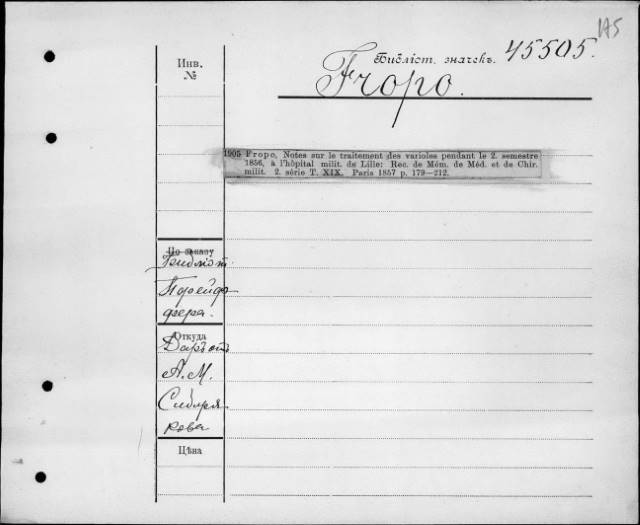 145
Инв.
№
Библіот. значекъ. 45505.
Fropo.
1905 Fropo, Notes sur le traitement des varioles pendant le 2. semestre
1856, à l'hôpital milit. de Lille: Rec. de Mém. de Méd. et de Chir.
milit. 2. série T. XIX. Paris 1857 p. 179—212.
По заказу
Библіот.
Порейдъ-
фера.
Откуда
Даръ отъ
А. М.
Сибиря-
кова
Цѣна